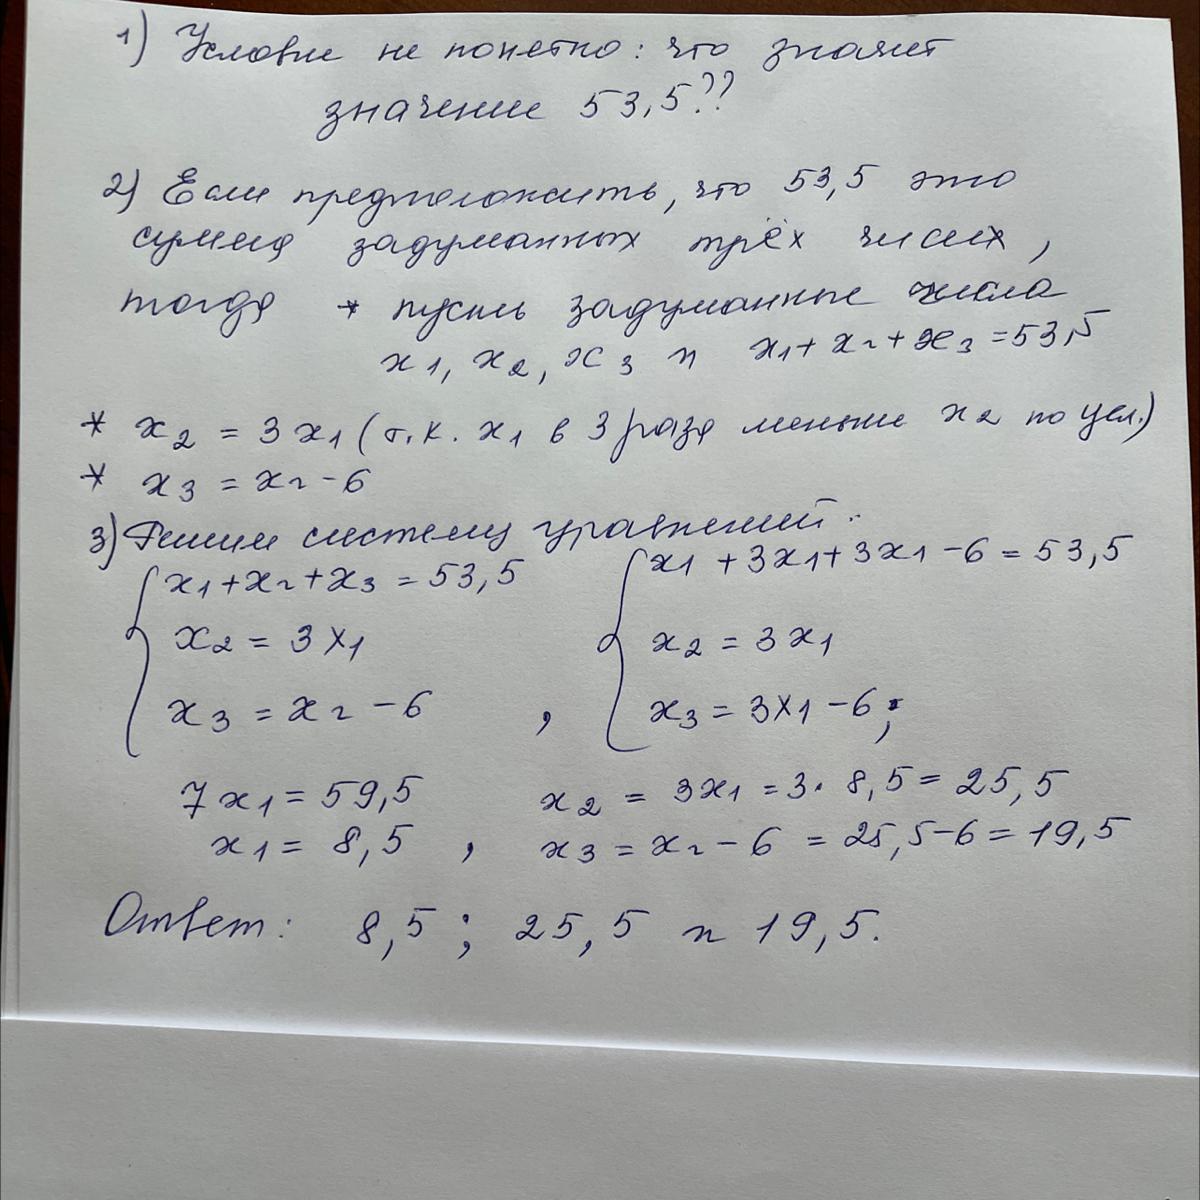 1) Условие не понятно: что значит
значение 53,5??
2) Если предположить, что 53,5 это
сумма задуманных трёх чисел,
тогда * пусть задуманные числа
x1, x2, x3 и x1+x2+x3=53,5
* x2 = 3x1 (т.к. x1 в 3 раза меньше x2 по усл.)
* x3 = x2-6
3) Решим систему уравнений:
x1+x2+x3=53,5
x2=3x1
x3=x2-6,
x1+3x1+3x1-6=53,5
x2=3x1
x3=3x1-6;
7x1=59,5
x1=8,5,
x2=3x1=3·8,5=25,5
x3=x2-6=25,5-6=19,5
Ответ: 8,5; 25,5 и 19,5.